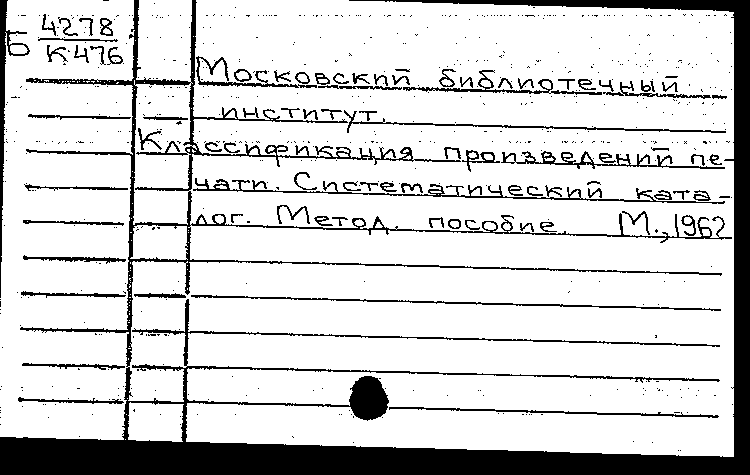 Б 4278
К476
Московский библиотечный
институт.
Классификация произведений пе-
чати. Систематический ката-
лог. Метод. пособие. М., 1962